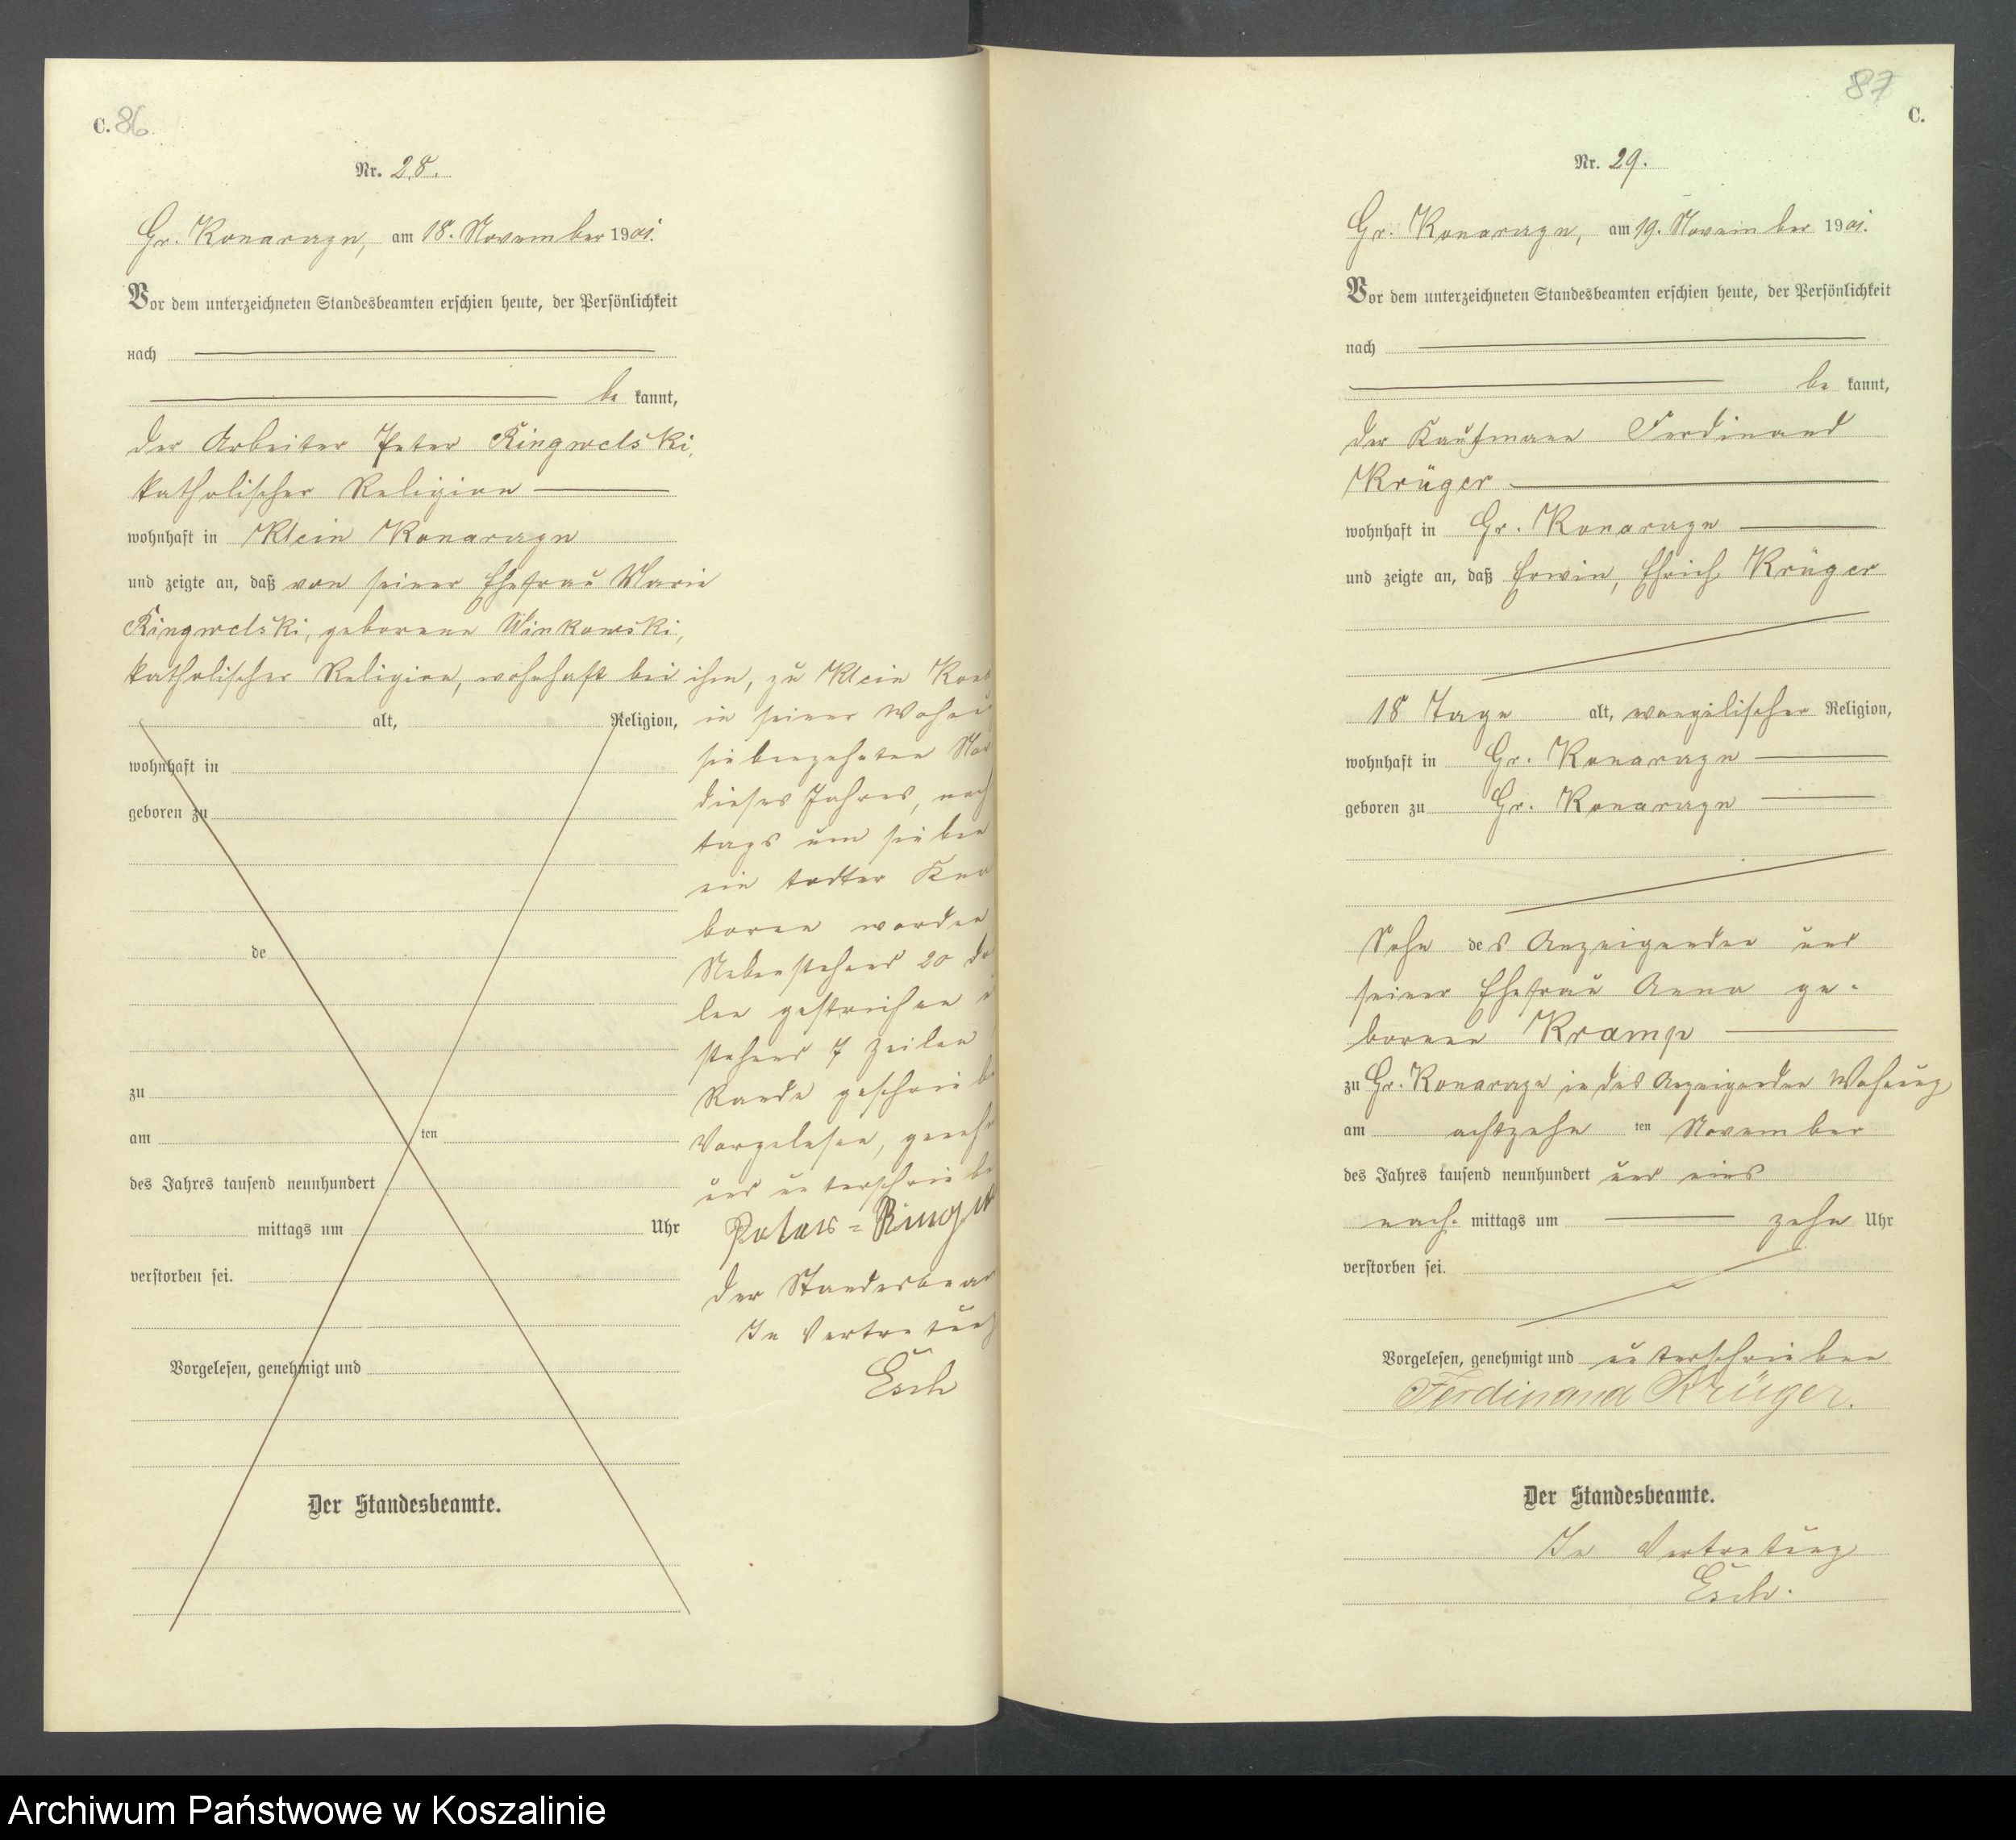 C. 86
Nr. 28.
Gr. Konarzyn, am 18. November 1901.
Vor dem unterzeichneten Standesbeamten erschien heute, der Persönlichkeit
nach
be kannt,
der Arbeiter Peter Ringwelski,
katholischer Religion
wohnhaft in Klein Konarzyn
und zeigte an, daß von seiner Ehefrau Marie
Ringwelski, geborene Winkowski,
katholischer Religion, wohnhaft bei ihm, zu Klein Kona
in seiner Wohnu
siebenzehnten Nov
dieses Jahres, nach
tags um sieben
ein todter Kna
boren worden
Nebenstehend 20
len gestrichen
stehend 7 Zeilen
Rande geschrieb
Vorgelesen, geneh
und unterschriebe
Peter Ringw
Der Standesbeam
In Vertretung
Esch
alt, Religion,
wohnhaft in
geboren zu
de
zu
am ten
des Jahres tausend neunhundert
mittags um Uhr
verstorben sei.
Vorgelesen, genehmigt und
Der Standesbeamte.
87
C.
Nr. 29.
Gr. Konarzyn, am 19. November 1901.
Vor dem unterzeichneten Standesbeamten erschien heute, der Persönlichkeit
nach
be kannt,
der Kaufmann Ferdinand
Krüger
wohnhaft in Gr. Konarzyn
und zeigte an, daß Erwin, Ehrich Krüger
18 Tage alt, evangelischer Religion,
wohnhaft in Gr. Konarzyn
geboren zu Gr. Konarzyn
Sohn des Anzeigenden und
seiner Ehefrau Anna ge-
borenen Kramp
zu Gr. Konarzyn in des Anzeigenden Wohnung
am achtzehn ten November
des Jahres tausend neunhundert und eins
nach mittags um zehn Uhr
verstorben sei.
Vorgelesen, genehmigt und unterschrieben
Ferdinand Krüger.
Der Standesbeamte.
In Vertretung
Esch.
Archiwum Państwowe w Koszalinie